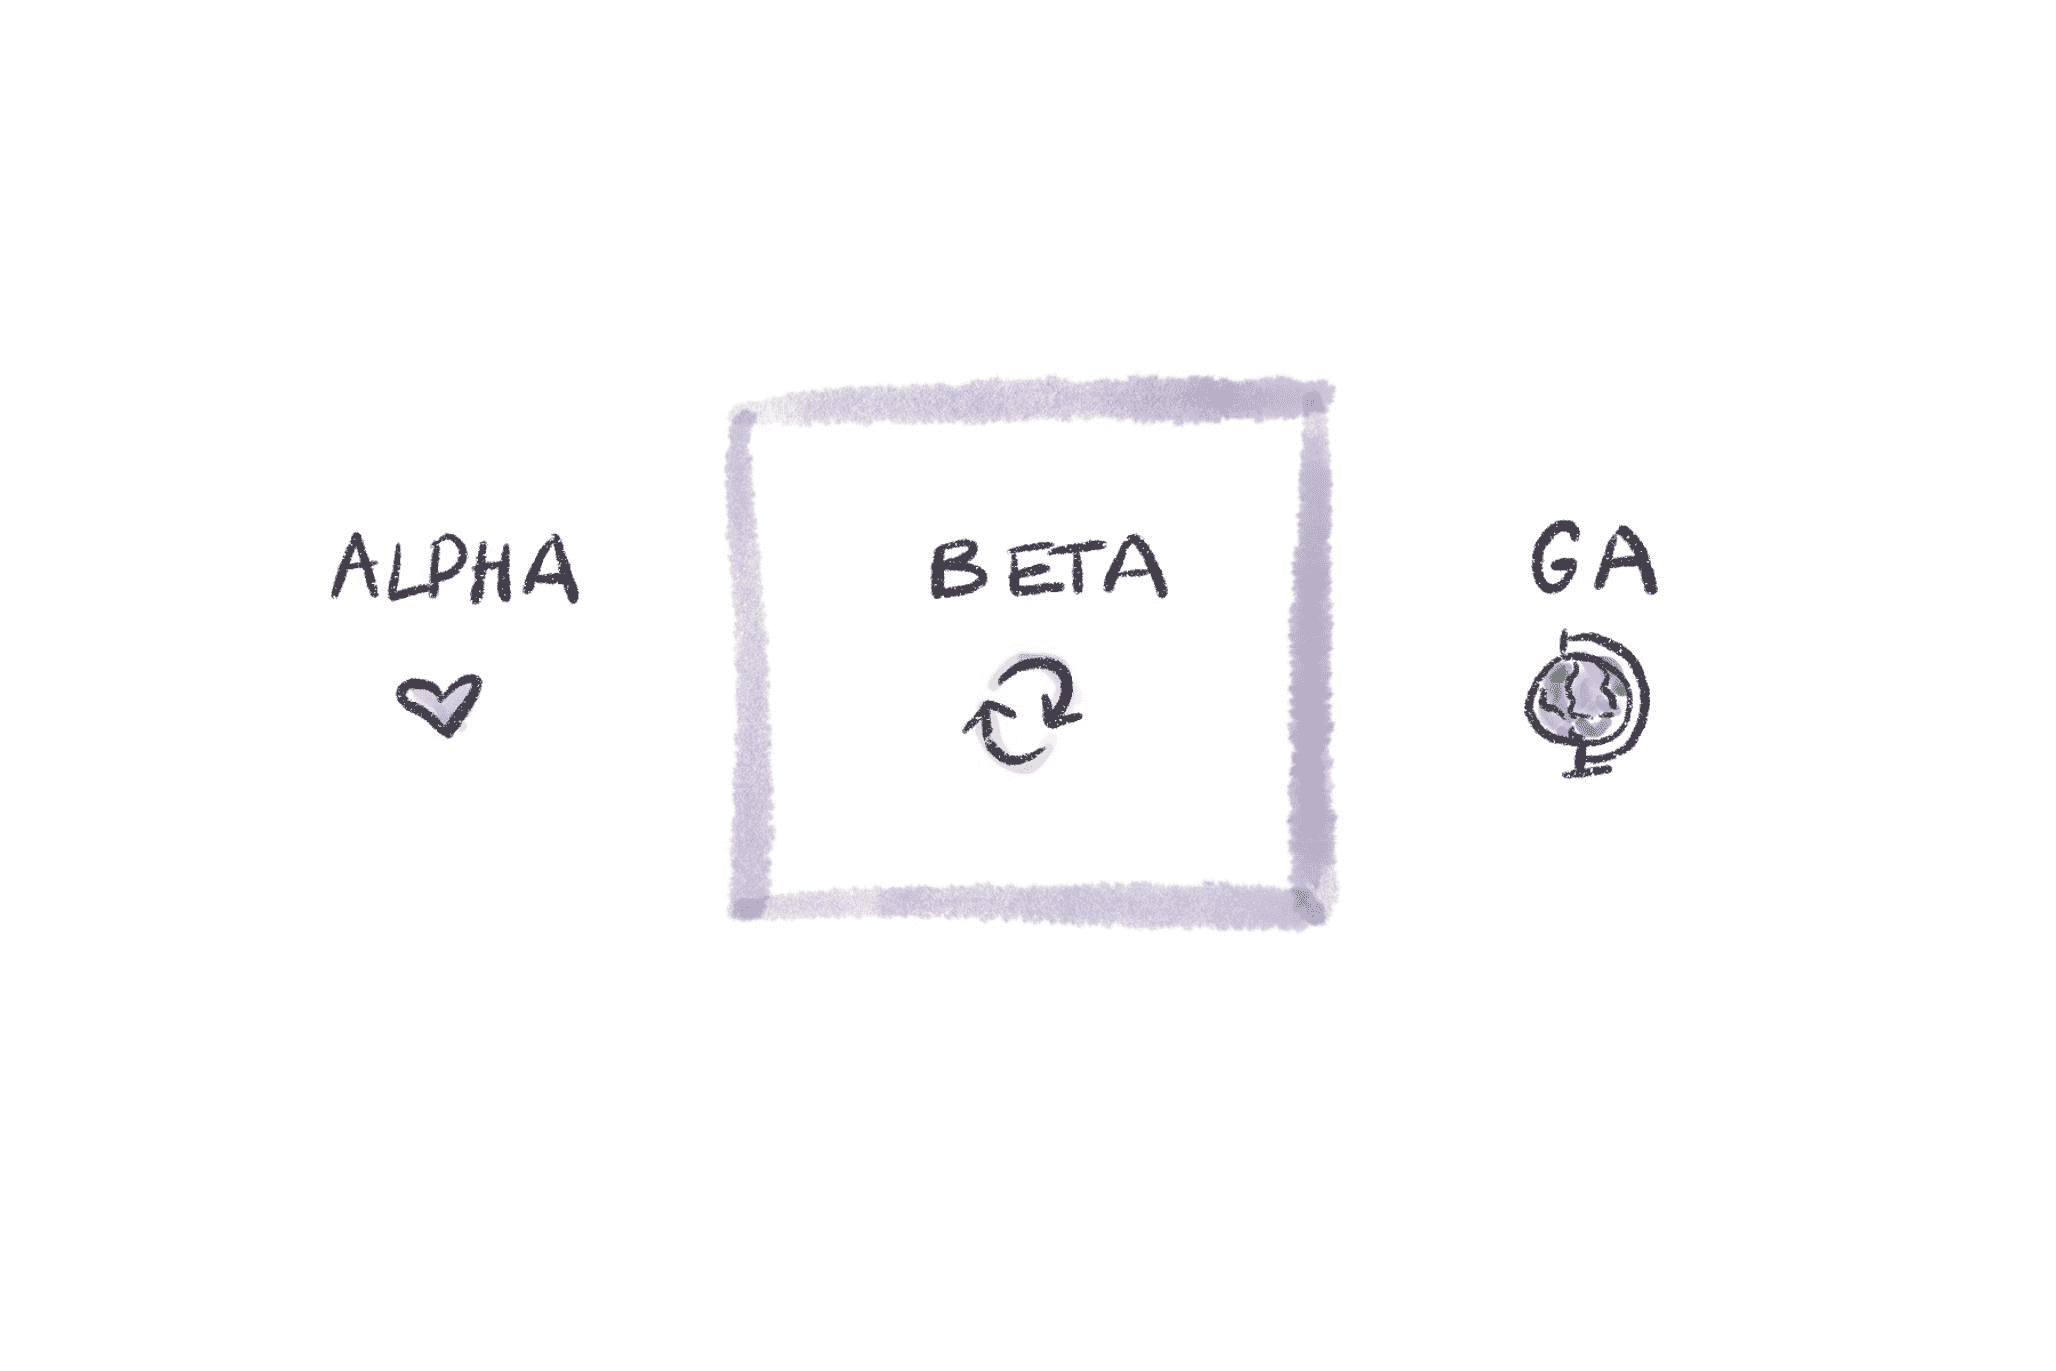 ALPHA
BETA
GA